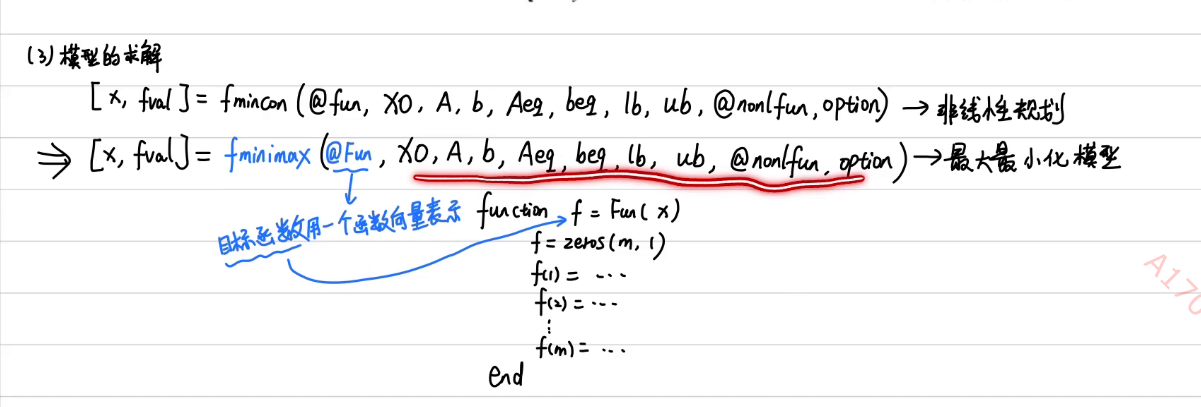 (3)模型的求解
[x, fval]= fmincon(@fun, X0, A, b, Aeq, beq, lb, ub, @nonlfun, option) → 非线性规划
⇒ [x, fval]= fminimax(@Fun, X0, A, b, Aeq, beq, lb, ub, @nonlfun, option) → 最大最小化模型
目标函数用一个函数向量表示
function f = Fun(x)
f = zeros(m, 1)
f(1) = ...
f(2) = ...
⋮
f(m) = ...
end